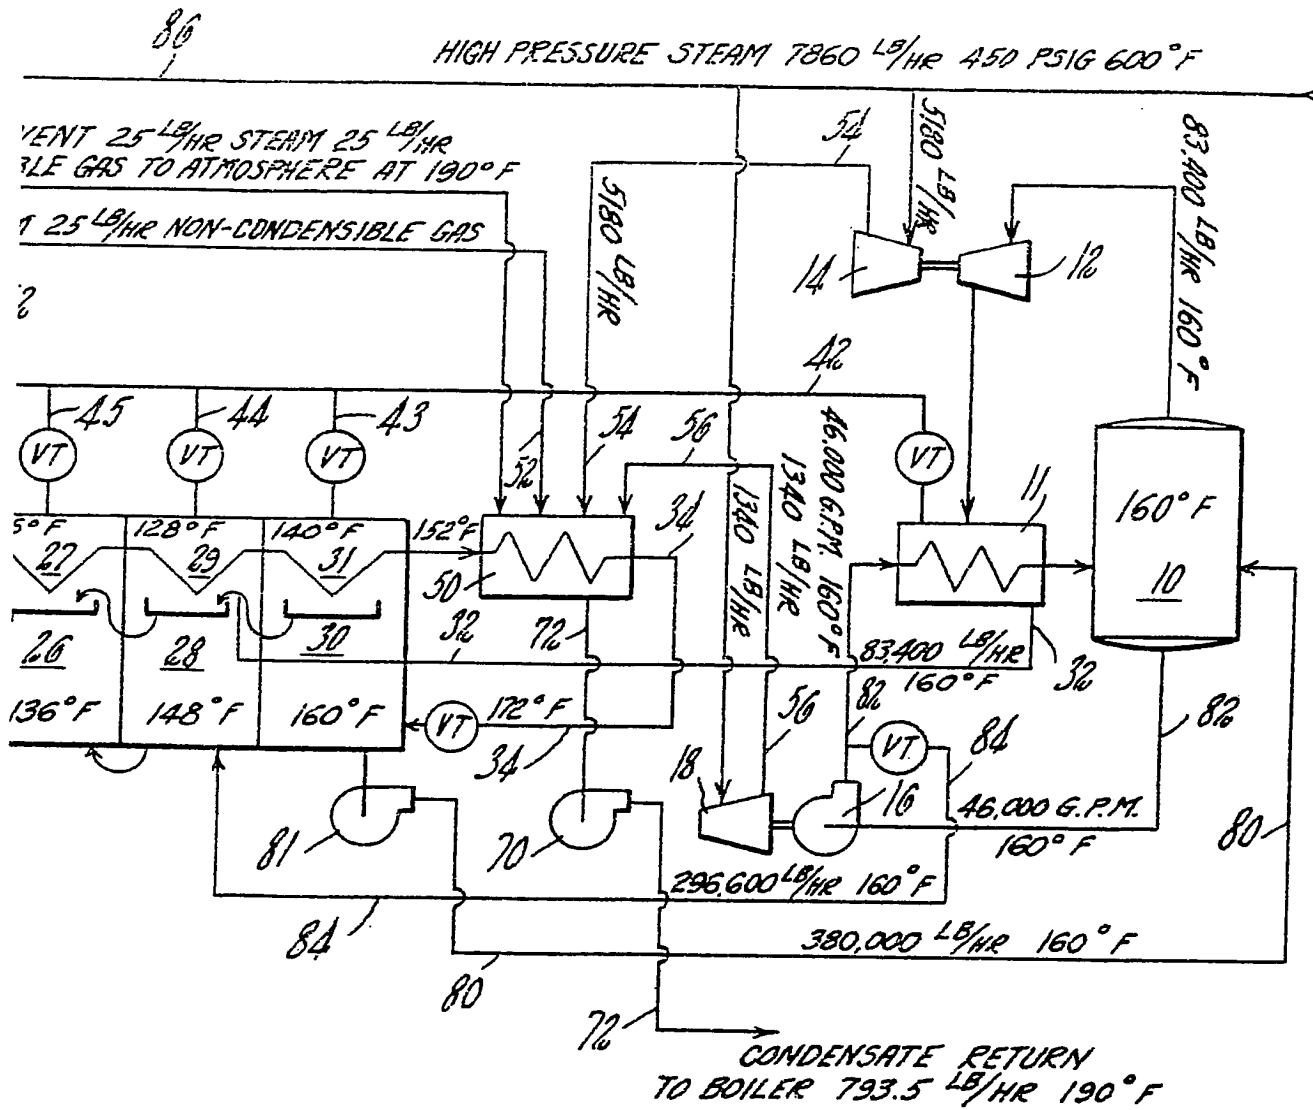 86
HIGH PRESSURE STEAM 7860 LB/HR 450 PSIG 600°F
VENT 25 LB/HR STEAM 25 LB/HR
BLE GAS TO ATMOSPHERE AT 190°F
25 LB/HR NON-CONDENSIBLE GAS
54
5180 LB/HR
5180 LB/HR
83,400 LB/HR 160°F
14
12
42
45
44
43
VT
VT
VT
VT
52
54
56
34
1340 LB/HR
1340 LB/HR
46,000 G.P.M. 160°F
11
160°F
10
5°F
128°F
140°F
152°F
27
29
31
50
26
28
30
32
72
83,400 LB/HR
160°F
32
136°F
148°F
160°F
VT
172°F
34
56
82
82
VT
84
18
16
46,000 G.P.M.
160°F
80
81
70
296,600 LB/HR 160°F
84
380,000 LB/HR 160°F
80
72
CONDENSATE RETURN
TO BOILER 793.5 LB/HR 190°F